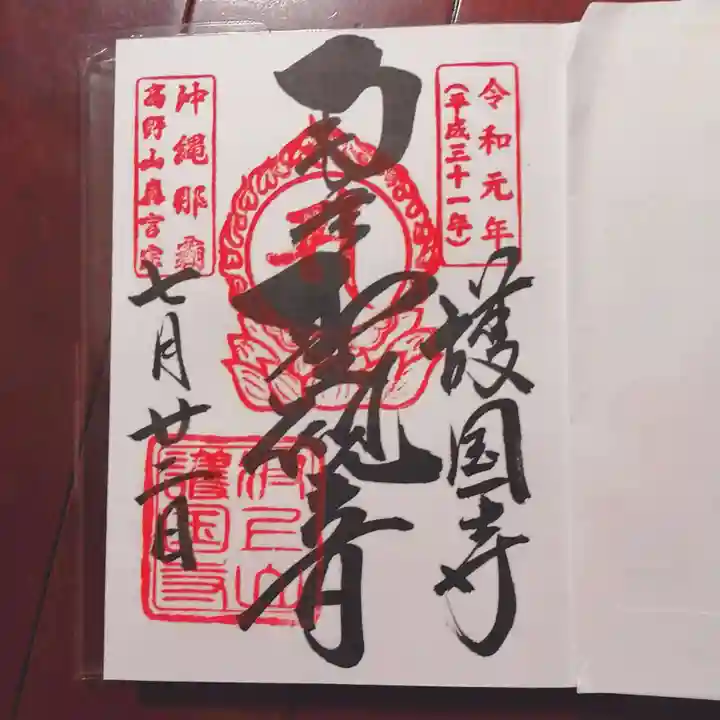 令和元年
(平成三十一年)
護国寺
聖観音
沖縄那覇
高野山真言宗
七月廿三日
波上山
護国寺